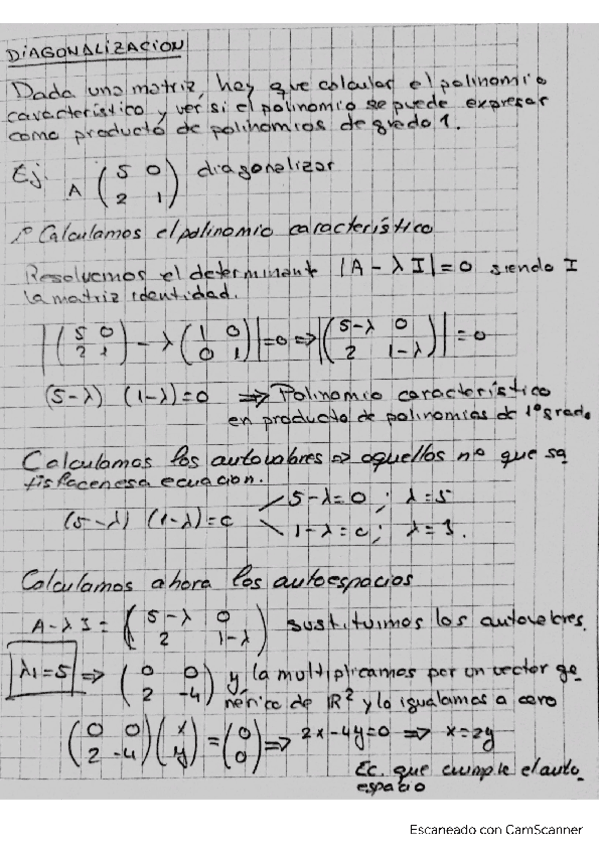 DIAGONALIZACION
Dada una matriz, hay que calcular el polinomio
característico y ver si el polinomio se puede expresar
como producto de polinomios de grado 1.
Ej. A (5 0 / 2 1) diagonalizar
1º Calculamos el polinomio característico
Resolvemos el determinant |A - λ I| = 0 siendo I
la matriz identidad.
|(5 0 / 2 1) - λ (1 0 / 0 1)| = 0 => |(5-λ 0 / 2 1-λ)| = 0
(5-λ) (1-λ) = 0 => Polinomio característico
en producto de polinomios de 1º grado
Calculamos los autovalores => aquellos nº que sa
tisfacen esa ecuacion.
5-λ=0 ; λ=5
(5-λ) (1-λ)=0
1-λ=0 ; λ=1.
Calculamos ahora los autoespacios
A-λI = (5-λ 0 / 2 1-λ) sustituimos los autovalores.
λ1=5 => (0 0 / 2 -4) y la multiplicamos por un vector ge_
nérico de R² y lo igualamos a cero
(0 0 / 2 -4)(x / y) = (0 / 0) => 2x-4y=0 => x=2y
Ec. que cumple el auto_
espacio
Escaneado con CamScanner